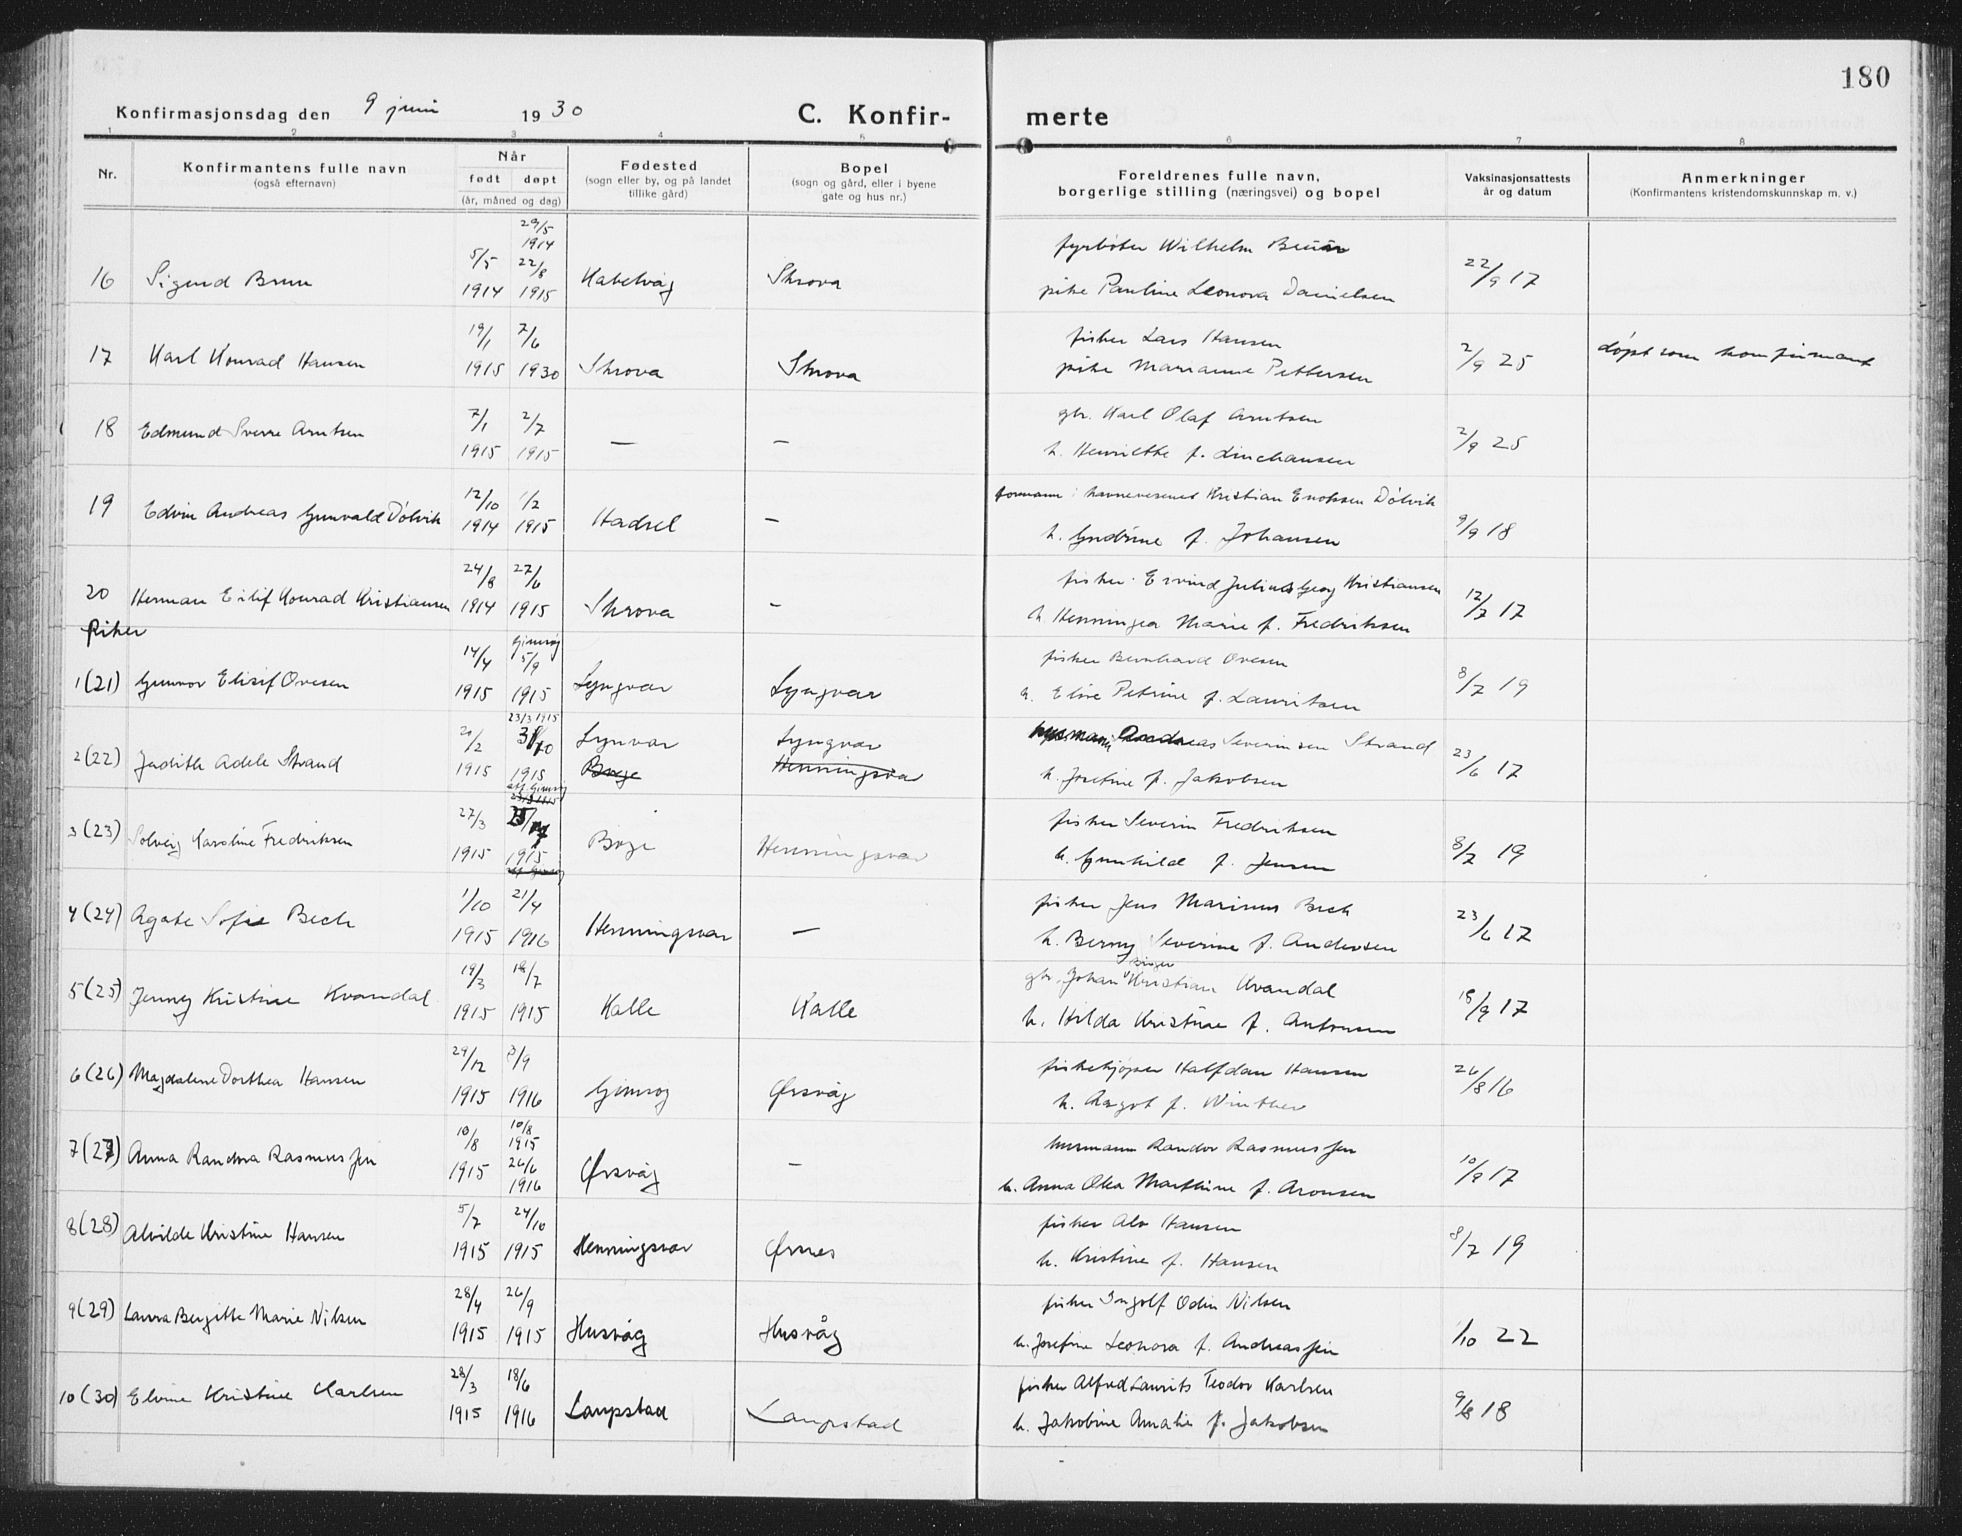 180
Konfirmasjonsdag den 9 juni 1930
C. Konfirmerte
1 2 3 4 5 6 7 8
Nr.
Konfirmantens fulle navn
(også efternavn)
Når
født døpt
(år, måned og dag)
Fødested
(sogn eller by, og på landet
tillike gård)
Bopel
(sogn og gård, eller i byene
gate og hus nr.)
Foreldrenes fulle navn,
borgerlige stilling (næringsvei) og bopel
Vaksinasjonsattests
år og datum
Anmerkninger
(Konfirmantens kristendomskunnskap m. v.)
29/5
1914
5/5 22/8 fyrbøter Wilhelm Bruun
16 Sigurd Brun 1914 1915 Kabelvåg Skrova pike Pauline Leonora Danielsen 22/9 17
19/1 7/6 fisker Lars Hansen
17 Karl Konrad Hansen 1915 1930 Skrova Skrova pike Marianne Pettersen 2/9 25 døpt som konfirmant
7/1 2/7 gbr. Karl Olaf Arntsen
18 Edmund Sverre Arntsen 1915 1915 — — h. Henriette f. Linchausen 2/9 25
12/10 1/2 formann i havnevesenet Kristian Enoksen Dølvik
19 Edvin Andreas Gunvald Dølvik 1914 1915 Hadsel — h. Gndrine f. Johansen 9/9 18
24/8 27/6 fisker Eivind Julius Georg Kristiansen
20 Herman Eilif Konrad Kristiansen 1914 1915 Skrova — h. Henningea Marie f. Fredriksen 12/7 17
Piker
14/4 Gimsøy 5/9 fisker Bernhard Ovesen
1(21) Gunvor Elisif Ovesen 1915 1915 Lyngvær Lyngvær h. Eline Petrine f. Lauritsen 8/7 19
23/3 1915
21/2 31/10 Lynvær Lyngvær husmann Andreas Severinsen Strand
2(22) Judith Adele Strand 1915 1915 Borge Henningsvær h. Josefine f. Jakobsen 23/6 17
27/3 fisker Severin Fredriksen
3(23) Solveig Karoline Fredriksen 1915 1915 Borge Henningsvær h. Gunhild f. Jensen 8/7 19
1/10 21/4 fisker Jens Marinus Bech
4(24) Agate Sofie Bech 1915 1916 Henningsvær — h. Berny Severine f. Andersen 23/6 17
19/3 18/7 gbr. Johan Birger Kristian Kvandal
5(25) Jenny Kristine Kvandal 1915 1915 Kalle Kalle h. Hilda Kristine f. Antonsen 18/9 17
29/12 3/9 fiskekjøper Halfdan Hansen
6(26) Magdalene Dorthea Hansen 1915 1916 Gimsøy Ørsvåg h. Aagot f. Winther 26/8 16
10/8
1915
10/8 26/6 husmann Randor Rasmussen
7(27) Anna Randora Rasmussen 1915 1916 Ørsvåg — h. Anna Olea Marthine f. Aronsen 10/9 17
5/7 24/10 fisker Alv Hansen
8(28) Alvilde Kristine Hansen 1915 1915 Henningsvær Ørsnes h. Kristine f. Hansen 8/7 19
28/4 26/9 fisker Ingolf Odin Nilsen
9(29) Laura Bergitte Marie Nilsen 1915 1915 Husvåg Husvåg h. Josefine Leonora f. Andreassen 1/10 22
28/3 18/6 fisker Alfred Laurits Teodor Karlsen
10(30) Elvine Kristine Karlsen 1915 1916 Laupstad Laupstad h. Jakobine Amalie f. Jakobsen 9/8 18